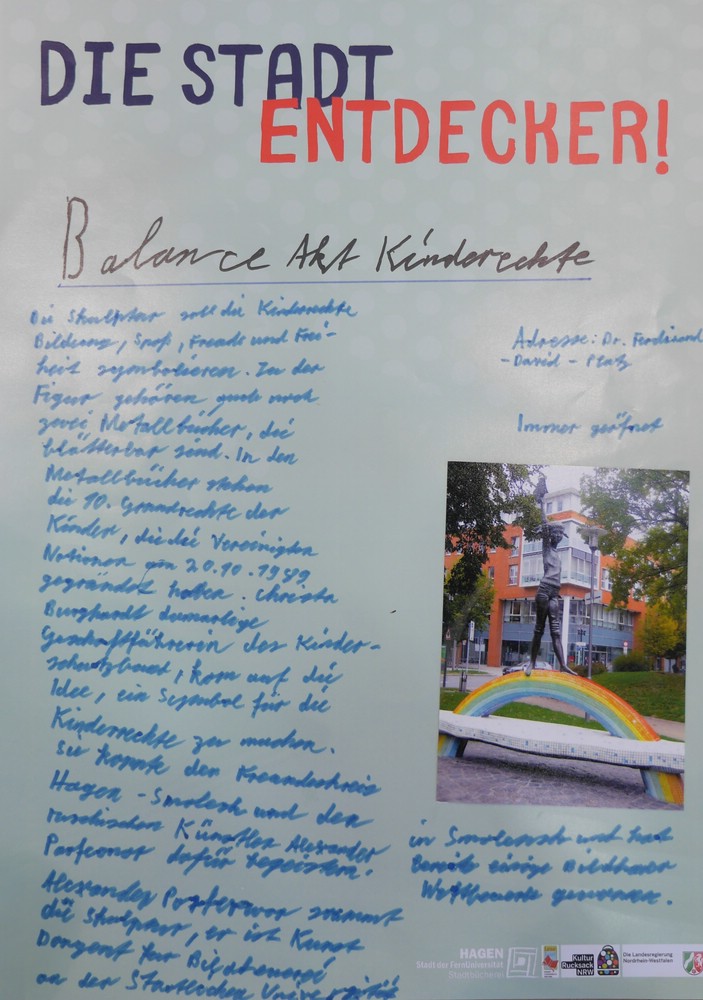 DIE STADT
ENTDECKER!
Balance Akt Kinderechte
Die Skulptur soll die Kinderechte
Bildung, Spaß, Freude und Frei-
heit symbolisieren. Zu der
Figur gehören auch noch
zwei Metallbücher, die
blätterbar sind. In den
Metallbücher stehen
die 10. Grundrechte der
Kinder, die die Vereinigten
Nationen am 20.10.1989
gegründet haben. Christa
Burghardt damarlige
Geschäftführerin des Kinder-
schutzbund, kam auf die
Idee, ein Symbol für die
Kinderrechte zu machen.
Sie konnte den Freundeskreis
Hagen - Smolesk und den
russischen Künstler Alexander
Parfeonot dafür begeistern.
Alexander
die Skulptur, er ist Kunst
Dozent für Bildhauerei
an der Staatlichen Universität
in Smolensk und hat
bereits einige Bildhauer
Wettbewerbe gewonnen.
Adresse: Dr. Ferdinand
-David-Platz
Immer geöffnet
HAGEN
Stadt der FernUniversität
Stadtbücherei
Kultur
Rucksack
NRW
Die Landesregierung
Nordrhein-Westfalen